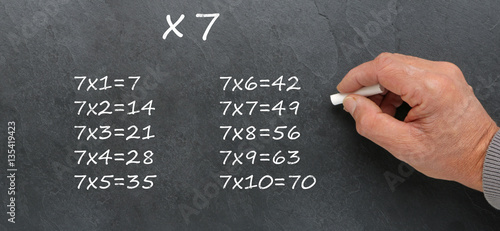 x 7
7x1=7
7x2=14
7x3=21
7x4=28
7x5=35
7x6=42
7x7=49
7x8=56
7x9=63
7x10=70
135419423